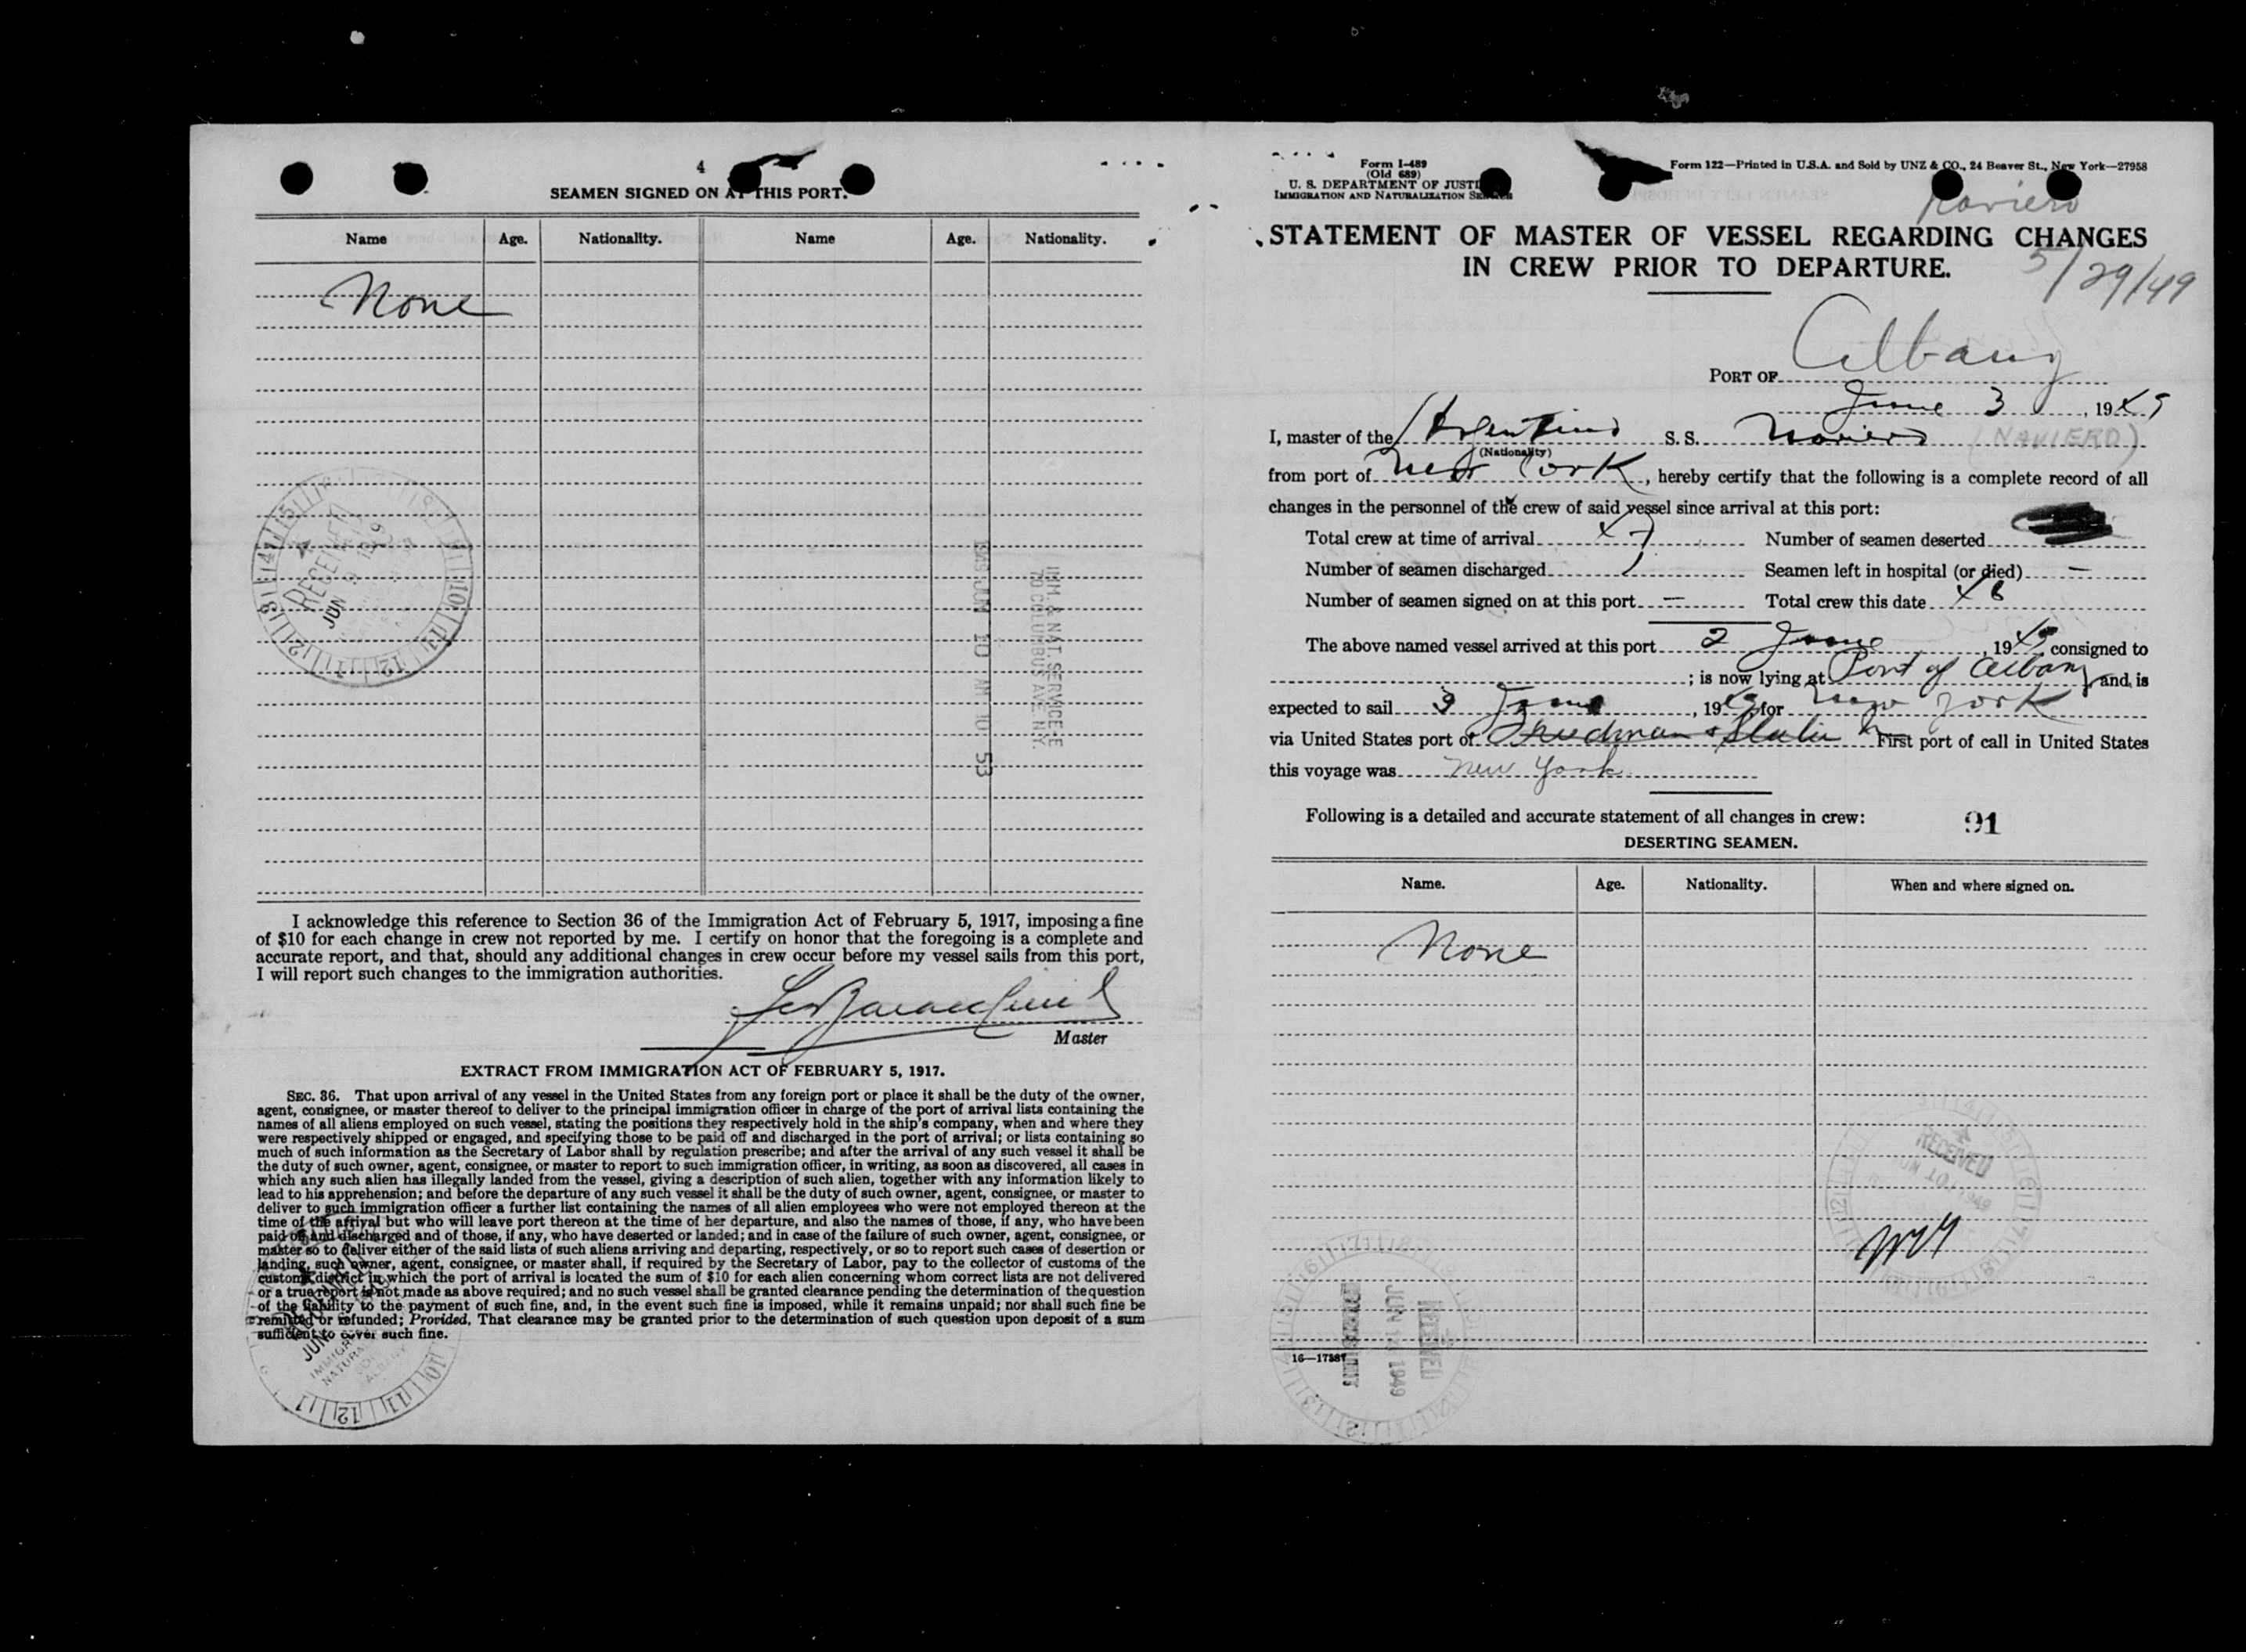 4
SEAMEN SIGNED ON AT THIS PORT.
Name Age. Nationality. Name Age. Nationality.
None
RECEIVED
JUN 1949
1949 JUN 10 AM 10 53
IMM & NAT. SERVICE
70 COLUMBUS AVE. N.Y.
I acknowledge this reference to Section 36 of the Immigration Act of February 5, 1917, imposing a fine
of $10 for each change in crew not reported by me. I certify on honor that the foregoing is a complete and
accurate report, and that, should any additional changes in crew occur before my vessel sails from this port,
I will report such changes to the immigration authorities.
Master
EXTRACT FROM IMMIGRATION ACT OF FEBRUARY 5, 1917.
SEC. 36. That upon arrival of any vessel in the United States from any foreign port or place it shall be the duty of the owner,
agent, consignee, or master thereof to deliver to the principal immigration officer in charge of the port of arrival lists containing the
names of all aliens employed on such vessel, stating the positions they respectively hold in the ship's company, when and where they
were respectively shipped or engaged, and specifying those to be paid off and discharged in the port of arrival; or lists containing so
much of such information as the Secretary of Labor shall by regulation prescribe; and after the arrival of any such vessel it shall be
the duty of such owner, agent, consignee, or master to report to such immigration officer, in writing, as soon as discovered, all cases in
which any such alien has illegally landed from the vessel, giving a description of such alien, together with any information likely to
lead to his apprehension; and before the departure of any such vessel it shall be the duty of such owner, agent, consignee, or master to
deliver to such immigration officer a further list containing the names of all alien employees who were not employed thereon at the
time of the arrival but who will leave port thereon at the time of her departure, and also the names of those, if any, who have been
paid off and discharged and of those, if any, who have deserted or landed; and in case of the failure of such owner, agent, consignee, or
master so to deliver either of the said lists of such aliens arriving and departing, respectively, or so to report such cases of desertion or
landing, such owner, agent, consignee, or master shall, if required by the Secretary of Labor, pay to the collector of customs of the
customs district in which the port of arrival is located the sum of $10 for each alien concerning whom correct lists are not delivered
or a true report is not made as above required; and no such vessel shall be granted clearance pending the determination of the question
of the liability to the payment of such fine, and, in the event such fine is imposed, while it remains unpaid; nor shall such fine be
remitted or refunded; Provided, That clearance may be granted prior to the determination of such question upon deposit of a sum
sufficient to cover such fine.
Form I-489
(Old 689)
U. S. DEPARTMENT OF JUSTICE
IMMIGRATION AND NATURALIZATION SERVICE
Form 122—Printed in U.S.A. and Sold by UNZ & CO., 24 Beaver St., New York—27958
Naviero
STATEMENT OF MASTER OF VESSEL REGARDING CHANGES
IN CREW PRIOR TO DEPARTURE.
5/29/49
PORT OF Albany
June 3, 1949
I, master of the Argentino S. S. Naviero (NAVIERO)
(Nationality)
from port of New York, hereby certify that the following is a complete record of all
changes in the personnel of the crew of said vessel since arrival at this port:
Total crew at time of arrival 47 Number of seamen deserted
Number of seamen discharged 1 Seamen left in hospital (or died) —
Number of seamen signed on at this port — Total crew this date 46
The above named vessel arrived at this port 2 June, 1949 consigned to
; is now lying at Port of Albany and is
expected to sail 3 June, 1949 for New York
via United States port of Friedman & Slater First port of call in United States
this voyage was New York
Following is a detailed and accurate statement of all changes in crew:
91
DESERTING SEAMEN.
Name. Age. Nationality. When and where signed on.
None
RECEIVED
JUN 10 1949
RECEIVED
JUN 1949
16—17387